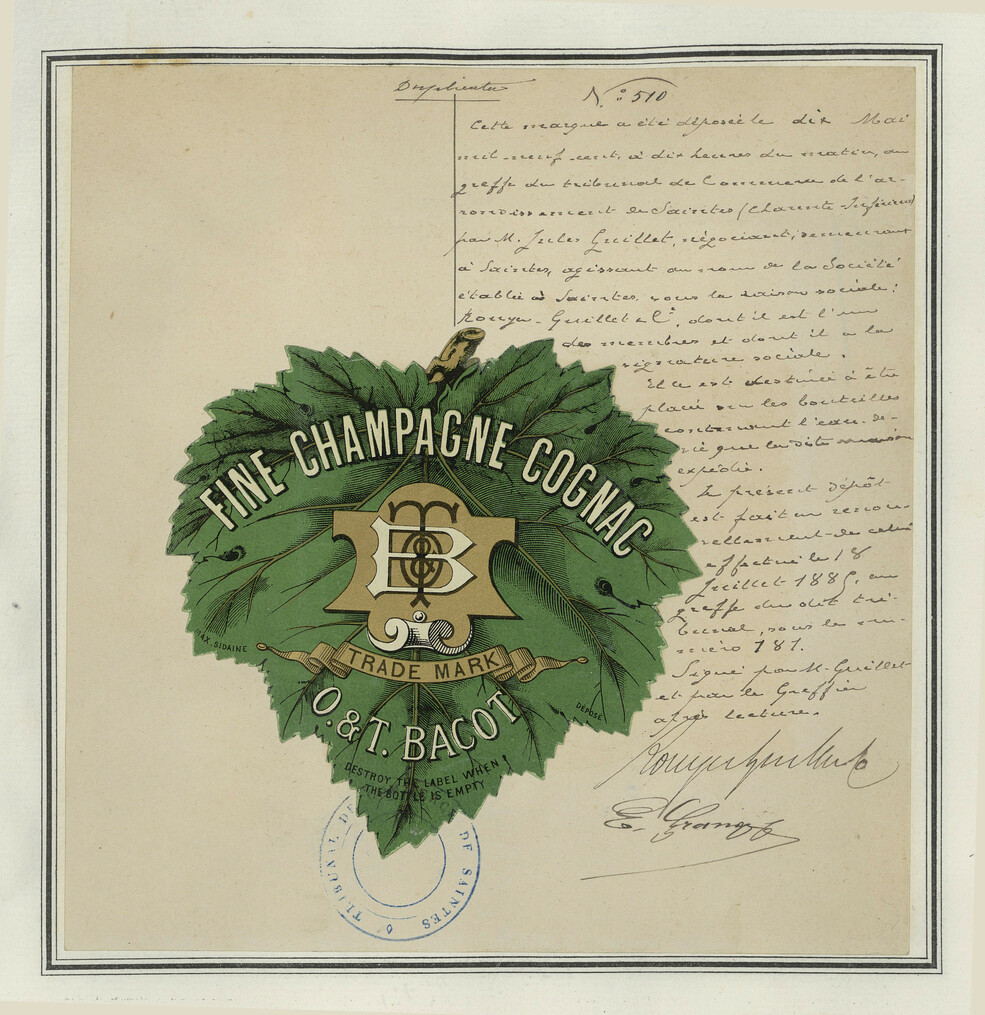 Duplicata
N.º 510
Cette marque a été déposée le dix Mai
mil-neuf-cent, à dix heures du matin, au
greffe du tribunal de Commerce de l'ar-
rondissement de Saintes (Charente-Inférieure)
par M. Jules Guillet, négociant, demeurant
à Saintes, agissant au nom de la Société
établie à Saintes, sous la raison sociale:
Rouyer-Guillet & Cie, dont il est l'un
des membres et dont il a la
signature sociale.
Elle est destinée à être
placée sur les bouteilles
contenant l'eau-de-
vie que la dite maison
expédie.
Le présent dépôt
est fait en renou-
vellement de celui
effectué le 18
Juillet 1885, au
greffe du dit tri-
bunal, sous le nu-
méro 181.
Signé par M. Guillet
et par le Greffier
après lecture.
Rouyer Guillet & Co
FINE CHAMPAGNE COGNAC
B T O &
TRADE MARK
MAX. SIDAINE
DÉPOSÉ
O. & T. BACOT
DESTROY THE LABEL WHEN
THE BOTTLE IS EMPTY
TRIBUNAL DE DE SAINTES